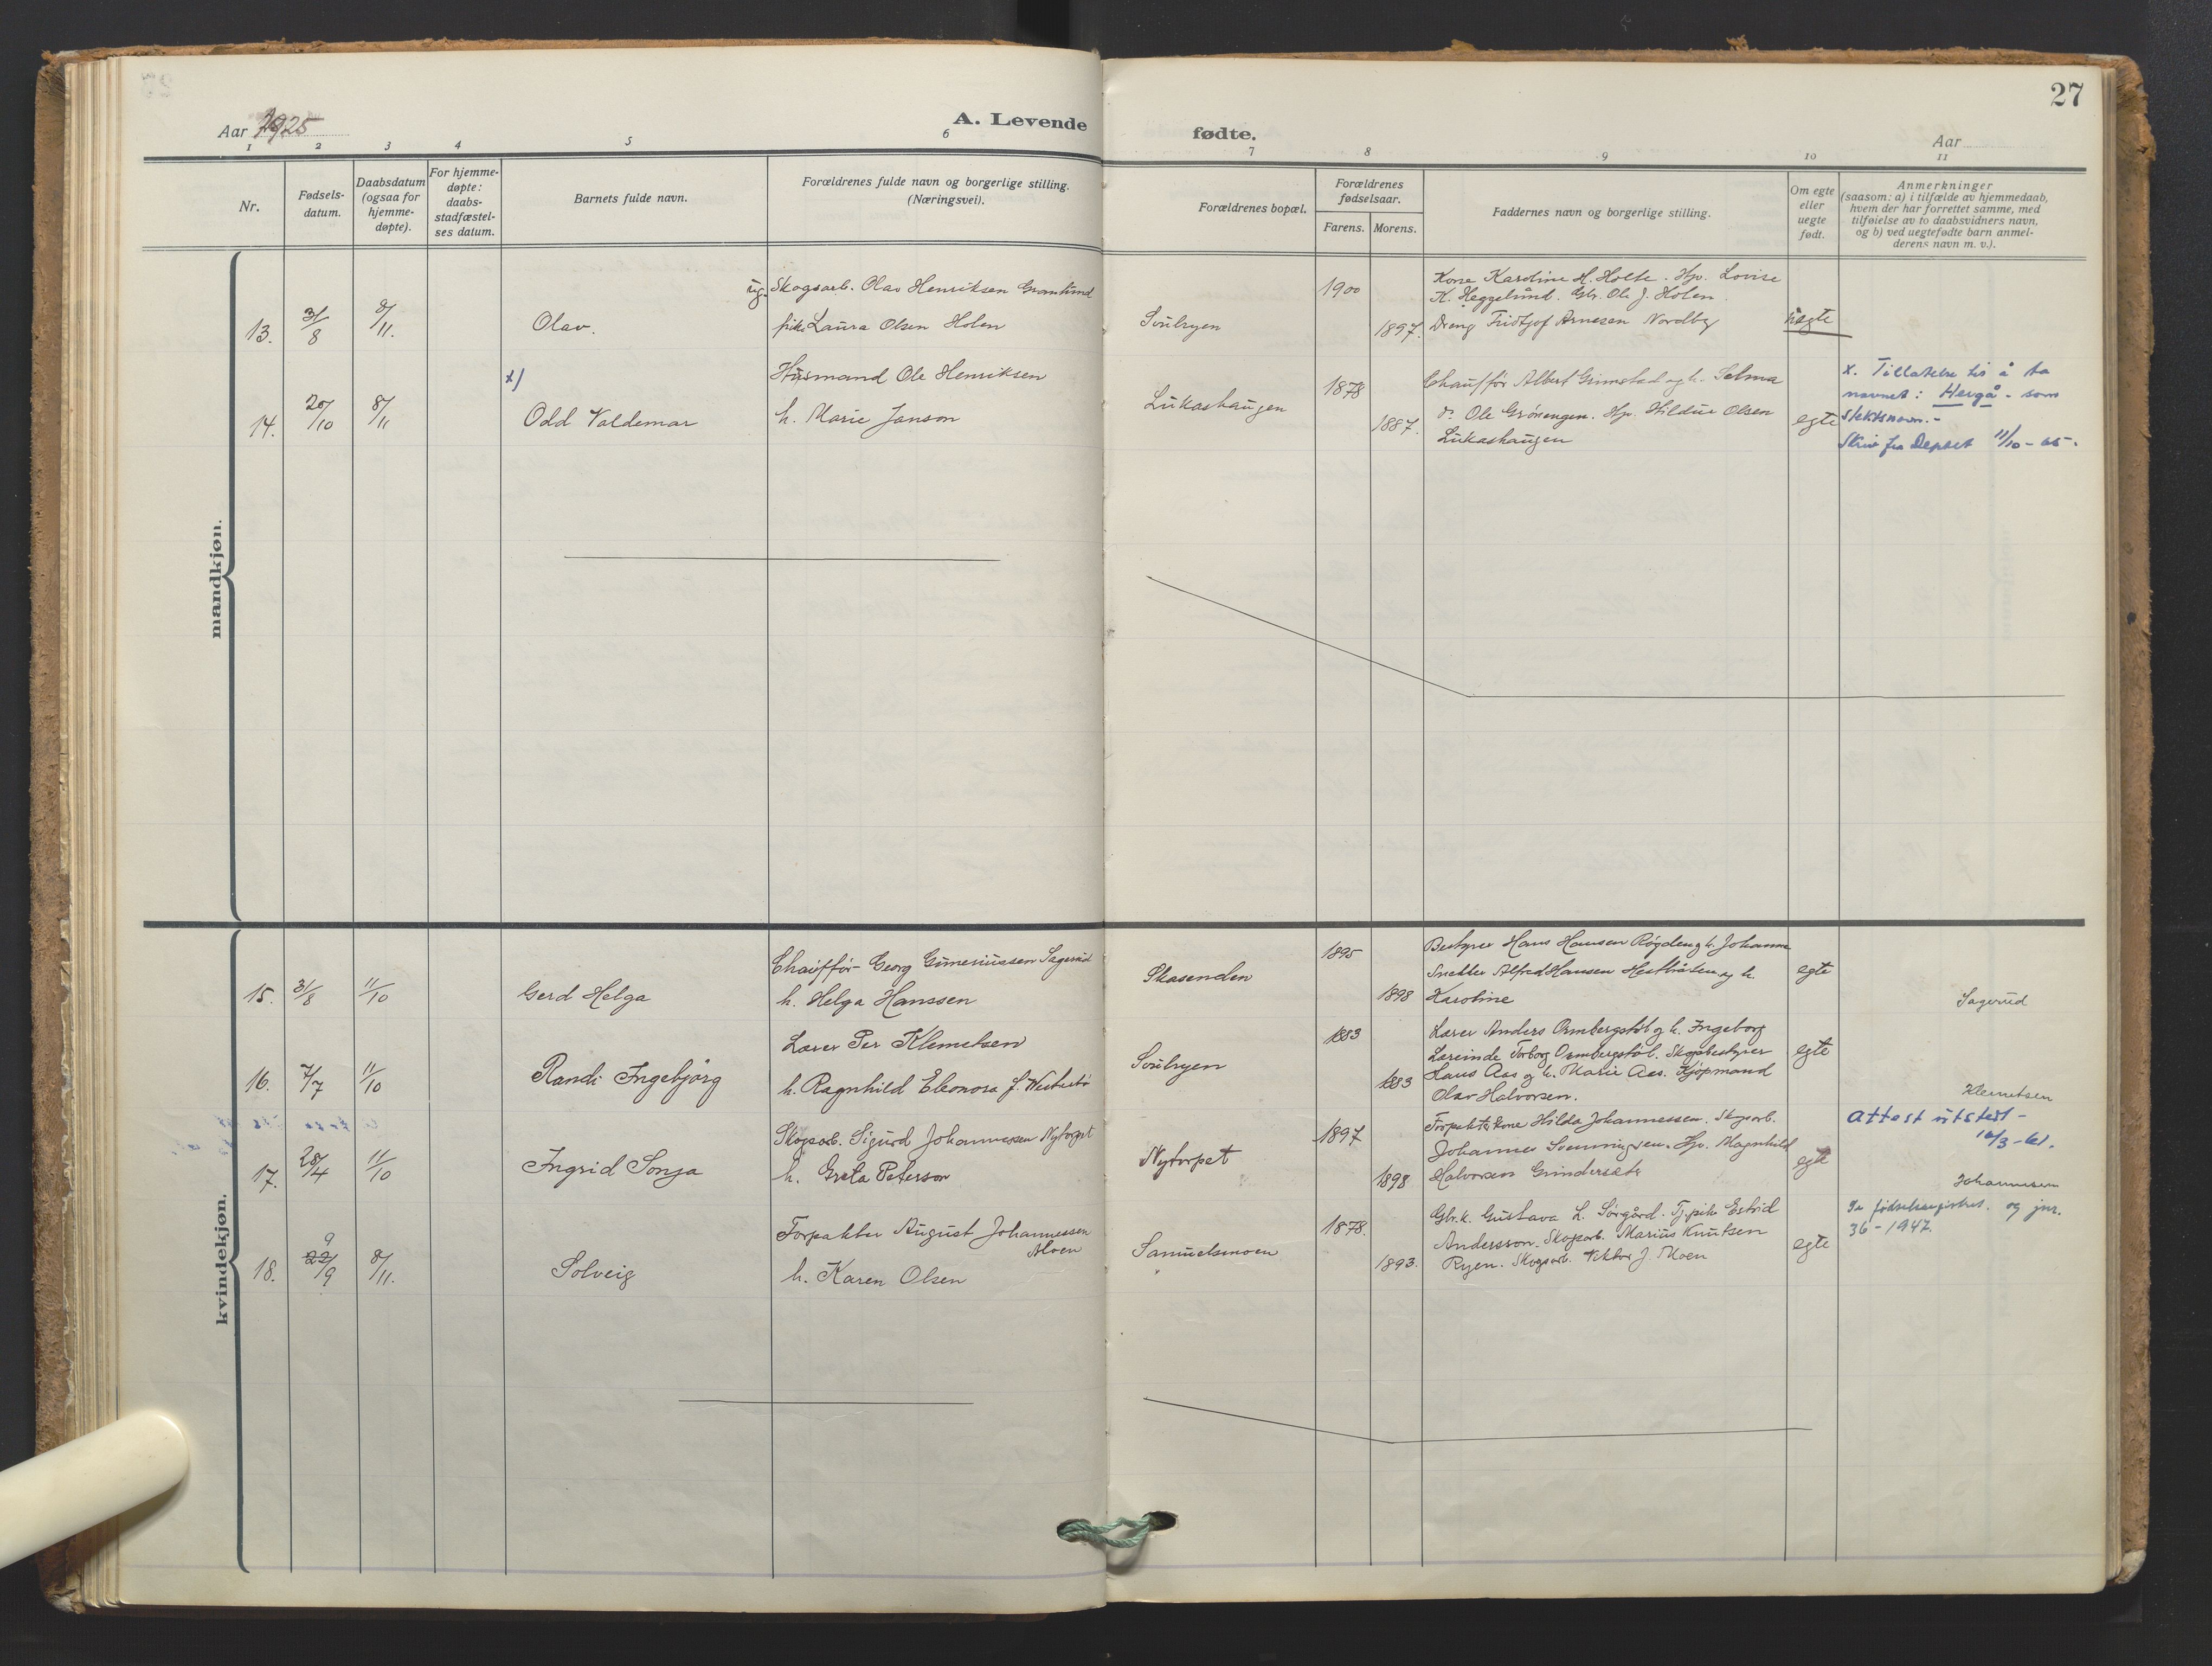 27
Aar 1925
A. Levende
fødte.
Aar
1 2 3 4 5 6
7 8 9 10 11
Nr.
Fødsels-
datum.
Daabsdatum
(ogsaa for
hjemme-
døpte).
For hjemme-
døpte:
daabs-
stadfæstel-
ses datum.
Barnets fulde navn.
Forældrenes fulde navn og borgerlige stilling.
(Næringsvei).
Forældrenes bopæl.
Forældrenes
fødselsaar.
Farens. Morens.
Faddernes navn og borgerlige stilling.
Om egte
eller
uegte
født.
Anmerkninger
(saasom: a) i tilfælde av hjemmedaab,
hvem der har forrettet samme, med
tilføielse av to daabsvidners navn,
og b) ved uegtefødte barn anmel-
derens navn m. v.).
mandkjøn.
13. 31/8 8/11. Olav.
ug. Skogsarb. Olav Henriksen Granlund
pike Laura Olsen Holen
Soulryen
1900
1897.
Kone Karoline H. Holte. Hp. Lovise
K. Heggelund. Gbr. Ole J. Holen.
Dreng Fridtjof Arnesen Nordby
uegte
x)
14. 20/10 8/11 Odd Valdemar
Husmand Ole Henriksen
h. Marie Janson
Lukashaugen
1878
1887.
Chauffør Albert Grimstad og h. Selma
Ole Grønengen. Hp. Hildur Olsen
Lukashaugen
egte
x. Tillatelse til å ta
navnet: Hevgå - som
slektsnavn.-
Skriv fra Deptet 11/10-65.
kvindekjøn.
15. 31/8 11/10 Gerd Helga
Chauffør Georg Guneriussen Sagerud
h. Helga Hanssen
Skasenden
1895
1898
Bestyrer Hans Hansen Røgden og h. Johanne
Snekker Alfred Hansen Hestbråten og h.
Karoline
egte
Sagerud
16. 7/7 11/10 Randi Ingebjørg
Lærer Per Klemetsen
h. Ragnhild Eleonora f. Westestø
Soulryen
1883
1883
Lærer Anders Ormbergstøl og h. Ingeborg
Lærerinde Torborg Ormbergstøl. Skogbestyrer
Hans Aas og h. Marie Aas. Kjøpmand
Olav Halvorsen.
egte
Klemetsen
17. 28/4 11/10 Ingrid Sonja
Skogsarb. Sigurd Johannessen Nytorpet
h. Greta Peterson
Nytorpet
1897
1898
Forpakterkone Hilda Johannessen. Skogsarb.
Johannes Svenningsen. Hp. Magnhild
Halvorsen Grindersæte
egte
Attest utstedt -
16/3-61.
Johannessen
9
18. 22/9 8/11. Solveig
Forpakter August Johannessen
Moen
h. Karen Olsen
Samuelsmoen
1878.
1893.
Gbr.k. Gustava L. Sørgård. Tj.pike Estrid
Andersson. Skogsarb. Marius Knutsen
Ryen. Skogsarb. Viktor J. Moen
egte
Se fødselsregistret. og jnr.
36-1947.